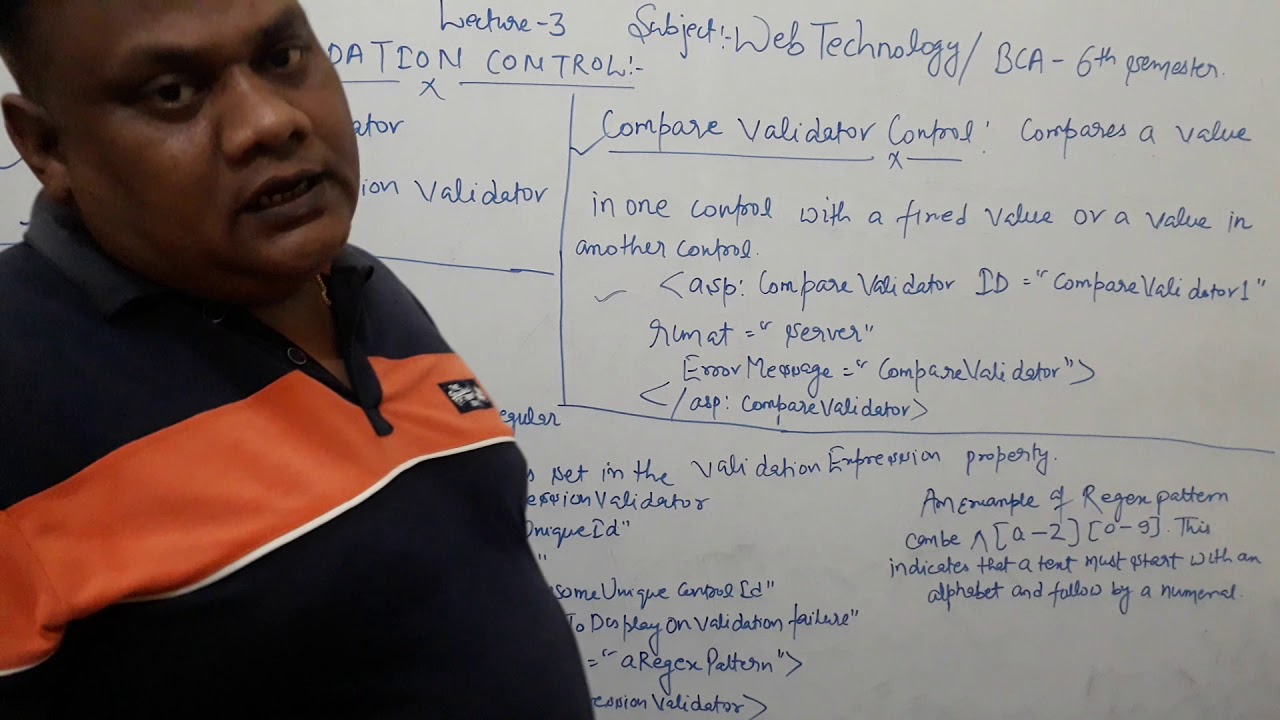 Lecture-3
Subject:- Web Technology/ BCA - 6th semester.
DATION CONTROL:-
ator
ion Validator
Compare Validator Control: Compares a value
in one control with a fixed value or a value in
another control.
<asp: CompareValidator ID = "CompareValidator1"
runat = "server"
ErrorMessage = "CompareValidator">
</asp: CompareValidator>
egular
s set in the ValidationExpression property.
essionValidator
UniqueId"
"
someUnique ControlId"
To Display On Validation failure"
= "aRegexPattern">
essionValidator>
An example of Regex pattern
can be ^[a-z][0-9]. This
indicates that a text must start with an
alphabet and follow by a numeral.